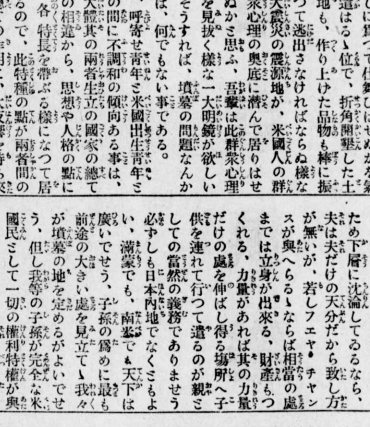 遣はるゝ位で、折角開墾した土
地も、作り上げた品物も棒に振
つて逃出さなければならぬ樣な
大震災の震源地が、米國人の群
衆心理の奥底に潜んで居りはせ
ぬかと思ふ、吾輩は此群衆心理
を見抜く樣な一大明鏡が欲しい
そうすれば、墳墓の問題なんか
は、何でもない事である。
呼寄せ靑年と米國出生靑年と
の間に不調和の傾向ある事は、
大體其の兩者生立の國家の總て
の相違から、思想や人格の點に
各特長を帶ぶる樣になつて居
るので、此特種の點が兩者間の
ため下層に沈淪してゐるなら、
夫は夫だけの天分だから致し方
が無いが、若しフェヤ・チャン
スが與へらるゝならば相當の處
までは立身が出來る、財產もつ
くれる、力量があれば其の力量
だけの處を伸ばし得る塲所へ子
供を連れて行つて遣るのが親と
しての當然の義務でありませう
必ずしも日本內地でなくともよ
い、滿蒙でも、南米でも天下は
廣いでせう、子孫の爲めに最も
前途の大きい處を見立てゝ我々
が墳墓の地を定めるがよいでせ
う、但し我等の子孫が完全な米
國民として一切の權利特權が與